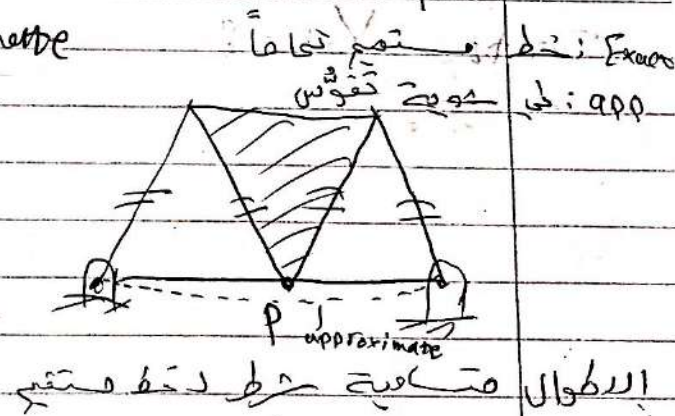 Exact : خط مستقيم تماماً
app : في شوية تقوّس
P
approximate
الاطوال متساوية شرط لخط مستقيم